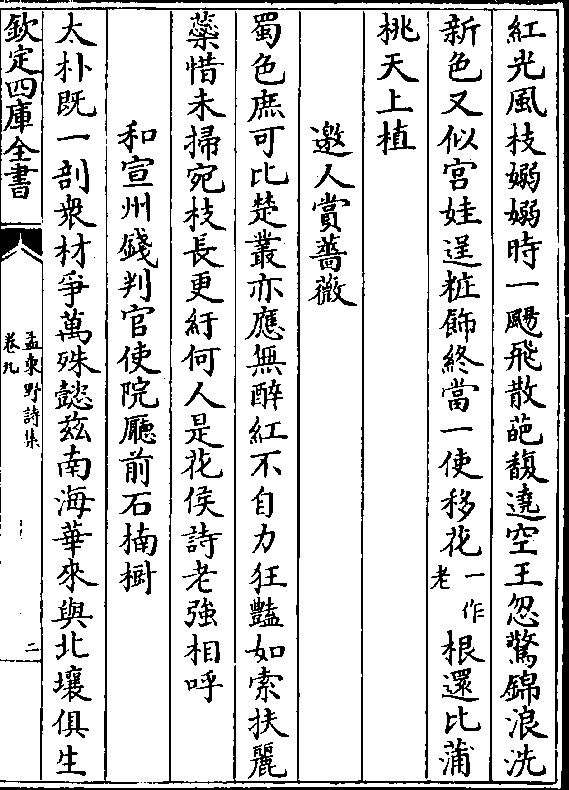 紅光風枝嫋嫋時一颺飛散葩馥遶空王忽驚錦浪洗
新色又似宮娃逞粧飾終當一使移花一作老根還比蒲
桃天上植
邀人賞薔薇
蜀色庶可比楚叢亦應無醉紅不自力狂豔如索扶麗
蘂惜未掃宛枝長更紆何人是花侯詩老強相呼
和宣州錢判官使院廳前石楠樹
太朴既一剖衆材爭萬殊懿茲南海華來與北壤俱生
欽定四庫全書
孟東野詩集
卷九
二